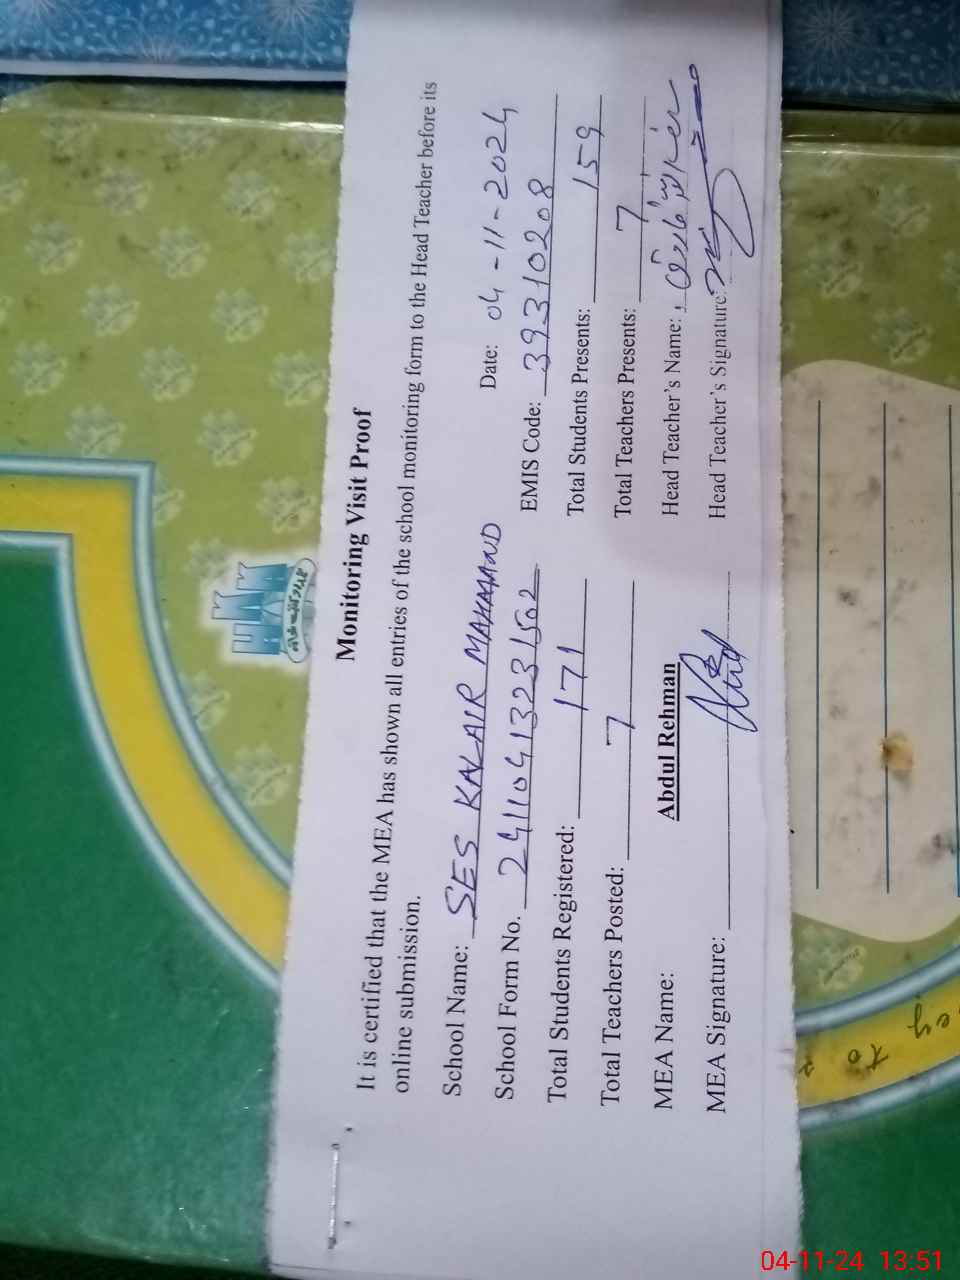 Monitoring Visit Proof
It is certified that the MEA has shown all entries of the school monitoring form to the Head Teacher before its
online submission.
School Name: SES KALAIR MAHAAND Date: 04-11-2024
School Form No. 241104132331502 EMIS Code: 39310208
Total Students Registered: 171 Total Students Presents: 159
Total Teachers Posted: 7 Total Teachers Presents: 7
MEA Name: Abdul Rehman Head Teacher's Name:
MEA Signature: Head Teacher's Signature:
to
04-11-24 13:51